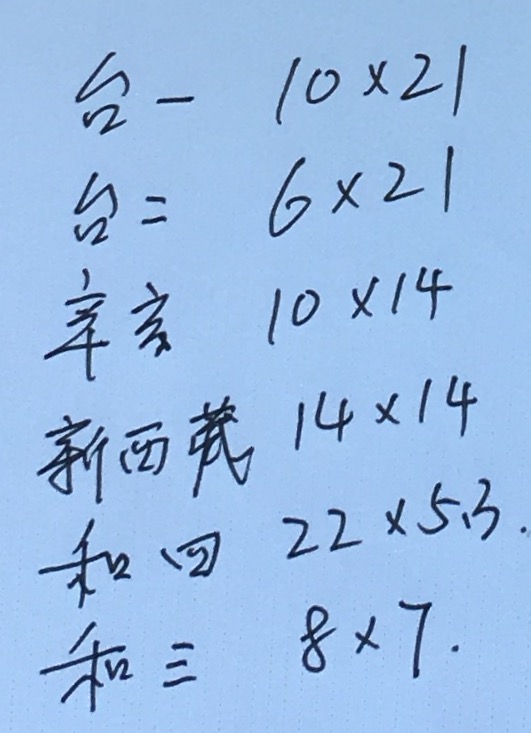 台一 10×21
台二 6×21
辛亥 10×14
新西藏 14×14
和四 22×5.3.
和三 8×7.